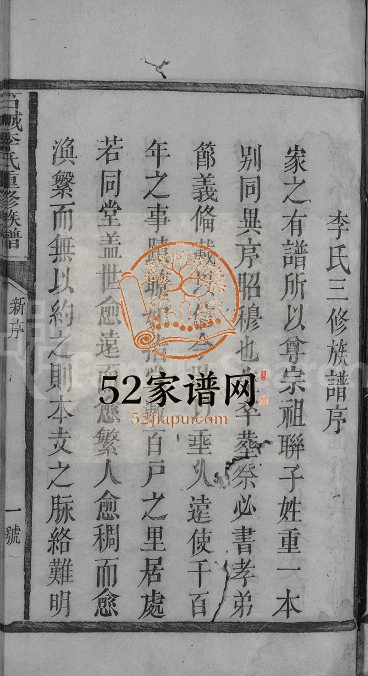 李氏三修族譜序
家之有譜所以尊宗祖聯子姓重一本
別同異序昭穆也生卒葬祭必書孝弟
節義備載以信今以垂久遠使千百
年之事百戶之里居處
若同堂蓋世愈遠而愈繁人愈稠而愈
渙繁而無以約之則本支之脉絡難明
石城李氏重修族譜
新序
一號
52家谱网
www.52jiapu.com